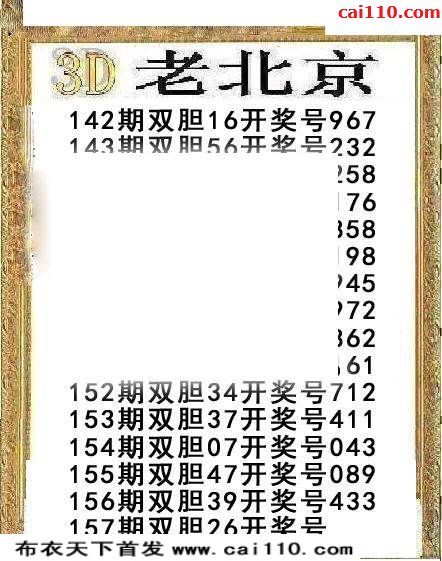 cai110.com
3D 老北京
142期双胆16开奖号967
143期双胆56开奖号232
258
176
858
198
945
972
862
161
152期双胆34开奖号712
153期双胆37开奖号411
154期双胆07开奖号043
155期双胆47开奖号089
156期双胆39开奖号433
157期双胆26开奖号
布衣天下首发 www.cai110.com